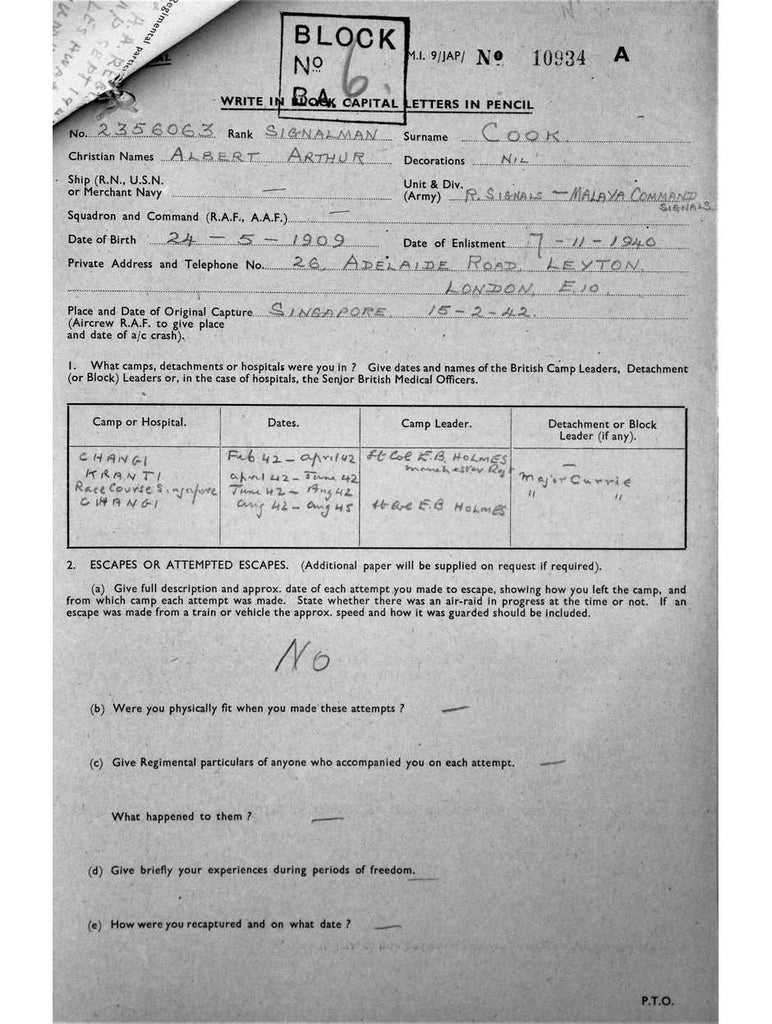 Regimental partic
BLOCK
No 6.
BA
M.I. 9/JAP/ No 10934 A
WRITE IN BLOCK CAPITAL LETTERS IN PENCIL
No. 2356063 Rank SIGNALMAN Surname COOK.
Christian Names ALBERT ARTHUR Decorations NIL
Ship (R.N., U.S.N. or Merchant Navy — Unit & Div. (Army) R. SIGNALS — MALAYA COMMAND SIGNALS
Squadron and Command (R.A.F., A.A.F.) —
Date of Birth 24 – 5 – 1909 Date of Enlistment 7 – 11 – 1940
Private Address and Telephone No. 26, ADELAIDE ROAD, LEYTON,
LONDON, E.10.
Place and Date of Original Capture SINGAPORE 15 – 2 – 42.
(Aircrew R.A.F. to give place
and date of a/c crash).
1. What camps, detachments or hospitals were you in ? Give dates and names of the British Camp Leaders, Detachment
(or Block) Leaders or, in the case of hospitals, the Senior British Medical Officers.
Camp or Hospital. Dates. Camp Leader. Detachment or Block Leader (if any).
CHANGI Feb 42 – april 42 Lt Col E.B. HOLMES —
Manchester Regt
KRANTI april 42 – June 42 Major Currie
Race Course Singapore June 42 – Aug 42 " "
CHANGI aug 42 – aug 45 Lt Col E.B HOLMES
2. ESCAPES OR ATTEMPTED ESCAPES. (Additional paper will be supplied on request if required).
(a) Give full description and approx. date of each attempt you made to escape, showing how you left the camp, and
from which camp each attempt was made. State whether there was an air-raid in progress at the time or not. If an
escape was made from a train or vehicle the approx. speed and how it was guarded should be included.
No
(b) Were you physically fit when you made these attempts ? —
(c) Give Regimental particulars of anyone who accompanied you on each attempt. —
What happened to them ? —
(d) Give briefly your experiences during periods of freedom. —
(e) How were you recaptured and on what date ? —
P.T.O.